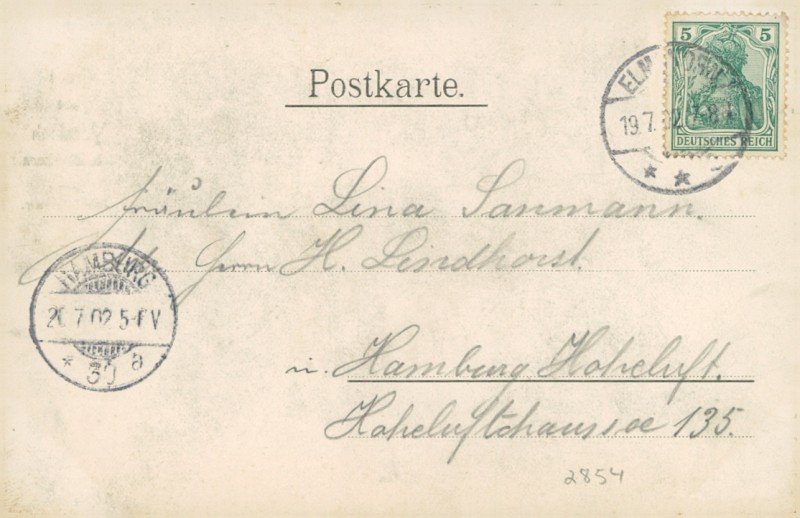 5 5
DEUTSCHES REICH
ELM
19.7.02
Postkarte.
Fräulein Lina Sanmann.
Herrn H. Lindhorst.
HAMBURG
20.7.02 5-6V
* 30 a
in Hamburg Hoheluft.
Hoheluftchaussee 135.
2854